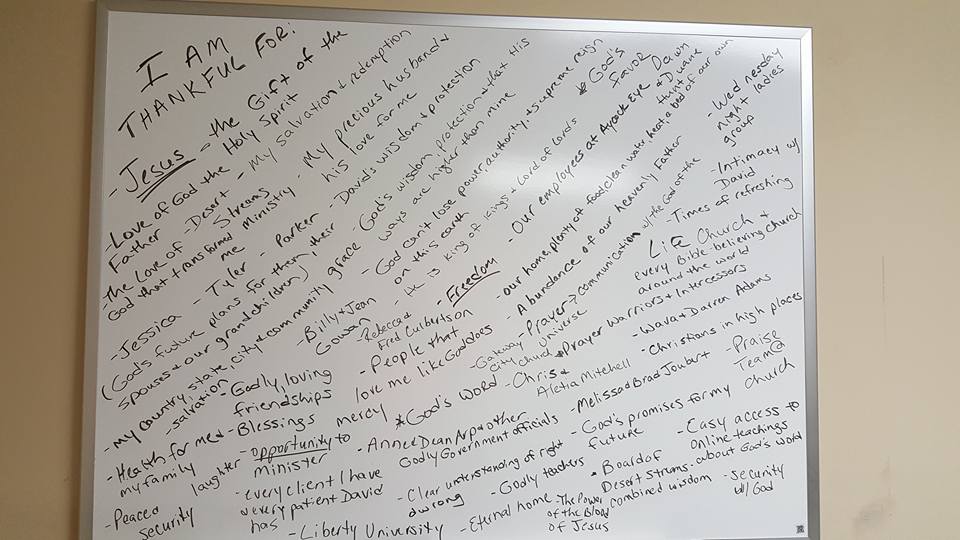 I AM
THANKFUL FOR:
- Jesus - the Gift of the
Holy Spirit
- Love of God the
Father
- Desert
Streams
Ministry
- My salvation & redemption
The Love of
God that transformed
me
- My precious husband &
his love for me
- Jessica - Tyler - Parker
(God's future plans for them, their
spouses & our grandchildren)
- David's wisdom & protection
- My country, state, city & community
- salvation, grace
God's wisdom, protection & that His
ways are higher than mine
- Billy & Jean
Gowan
- God can't lose power, authority, & supreme reign
on this earth
- He is King of Kings & Lord of Lords
* God's
Favor
- Rebecca &
Fred Culbertson
- Freedom
- Our employees at Aycock Eye
Dawn
& Duane
Hunt
- Health for me &
my family
- Godly, loving
friendships
- People that
love me like God does
- our home, plenty of food, clean water, heat, a bed of our own
- Abundance of our heavenly Father
- Blessings
mercy
- Gateway
City church
- Prayer → communication w/ the God of the
universe
- Wednesday
night ladies
group
- Intimacy w/
David
- Times of refreshing
Peace &
security
laughter
- opportunity to
minister
* God's Word
- Chris &
Aletia Mitchell
* Prayer Warriors & Intercessors
Life Church &
every Bible-believing church
around the world
- every client I have
& every patient David
has
- Anne & Dean Arp & other
Godly Government officials
- Melissa & Brad Joubert
- Wava & Darren Adams
- Christians in high places
- Liberty University
- Clear understanding of right
& wrong
- Godly teachers
- God's promises for my
future
- Praise
Team @
church
- Eternal home
- The Power
of the Blood
of Jesus
- Board of
Desert Streams
combined wisdom
- Easy access to
online teachings
about God's word
- security
w/ God